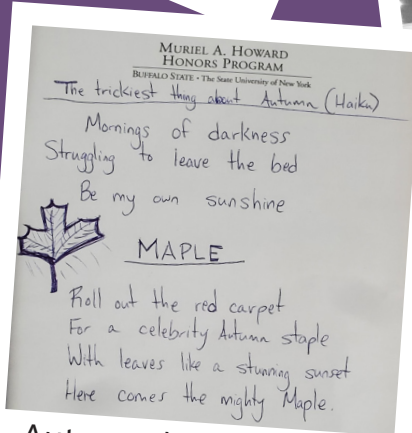 MURIEL A. HOWARD
HONORS PROGRAM
BUFFALO STATE • The State University of New York
The trickiest thing about Autumn (Haiku)
Mornings of darkness
Struggling to leave the bed
Be my own sunshine
MAPLE
Roll out the red carpet
For a celebrity Autumn staple
With leaves like a stunning sunset
Here comes the mighty Maple.